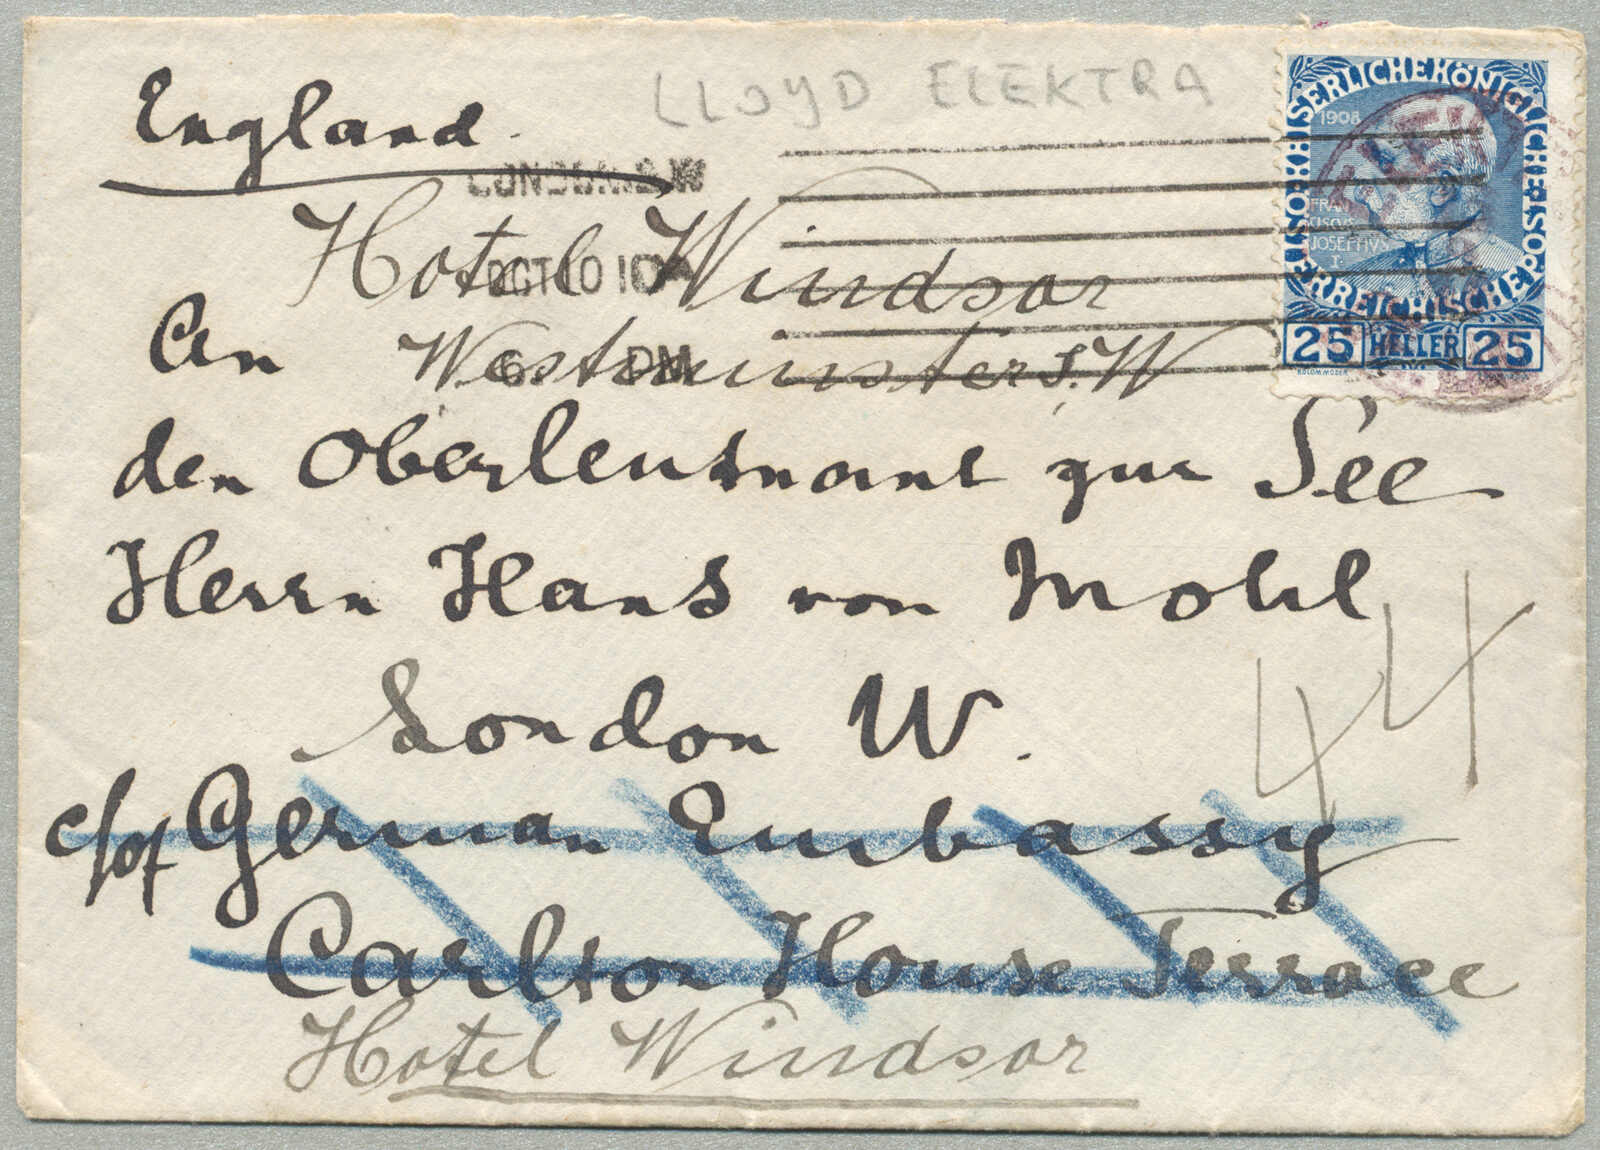 LLOYD ELEKTRA
England.
LONDON.S.W
Hotel Windsor
OCT 10 10
An Westminster S.W
6. PM
den Oberleutnant zur See
Herrn Hans von Mohl
London W.
c/of German Embassy
Carlton House Terrace
Hotel Windsor
44
KAISERLICHEKÖNIGLICHE ÖSTERREICHISCHE POST
1908
FRAN
CISCVS
JOSEPHVS
I.
25 HELLER 25
KOLOM.MOSER